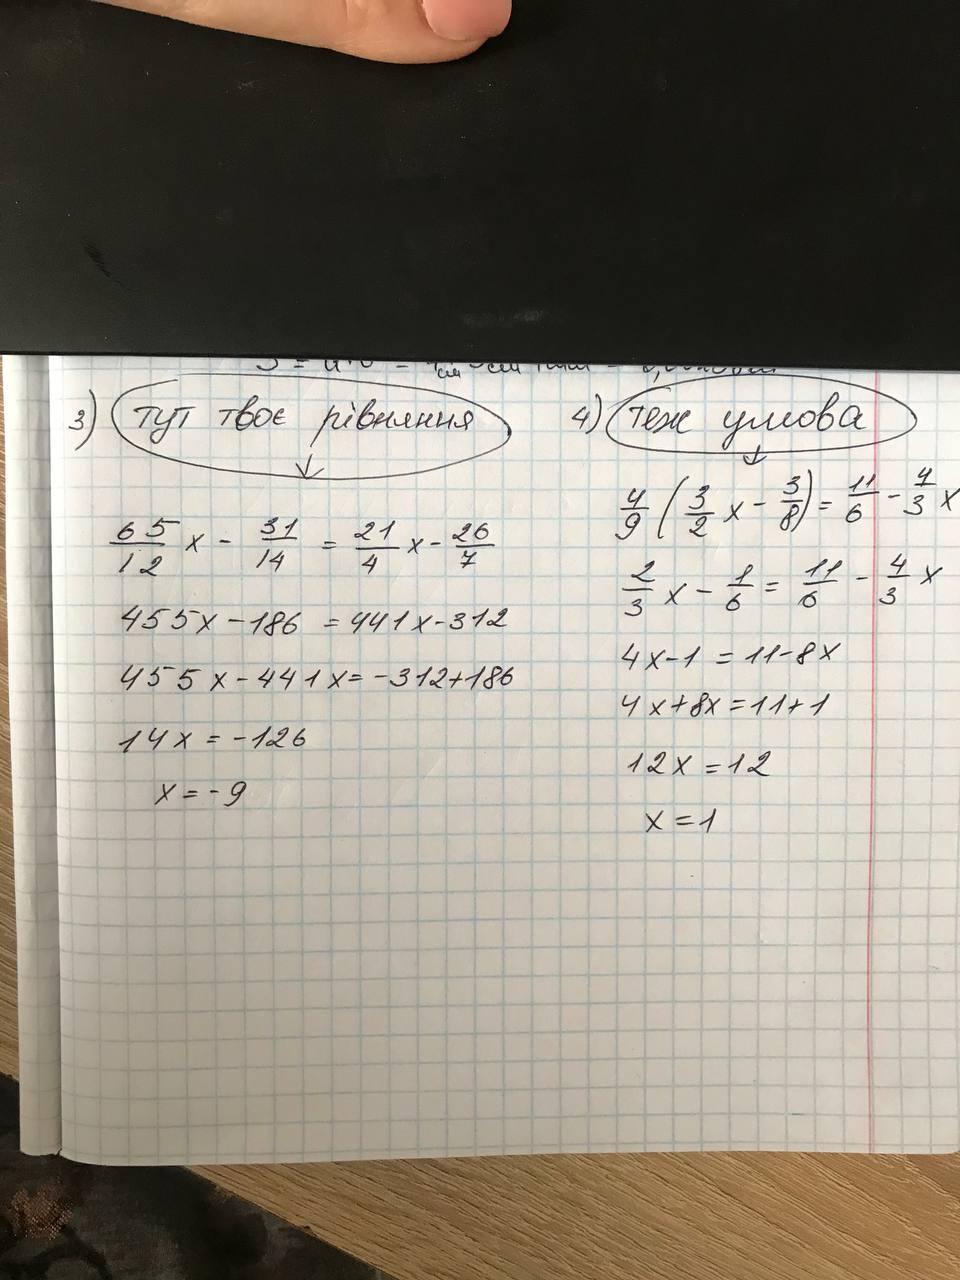 3) тут твоє рівняння
65/12 x - 31/14 = 21/4 x - 26/7
455x - 186 = 441x - 312
455x - 441x = -312 + 186
14x = -126
x = -9
4) теж умова
4/9 (3/2 x - 3/8) = 11/6 - 4/3 x
2/3 x - 1/6 = 11/6 - 4/3 x
4x - 1 = 11 - 8x
4x + 8x = 11 + 1
12x = 12
x = 1